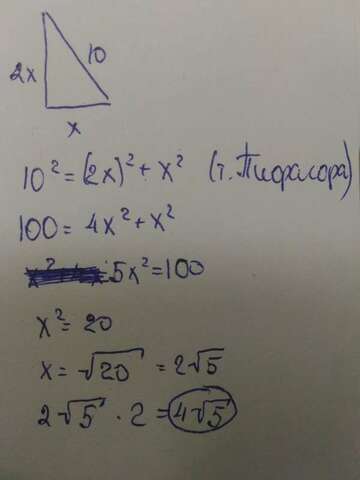 2x
10
x
10² = (2x)² + x² (т. Пифагора)
100 = 4x² + x²
5x² = 100
x² = 20
x = √20 = 2√5
2√5 · 2 = 4√5